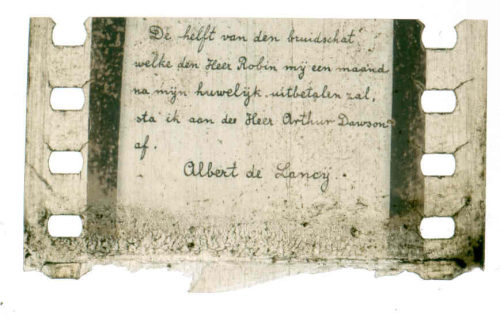 De helft van den bruidschat
welke den Heer Robin mij een maand
na mijn huwelijk uitbetalen zal,
sta ik aan den Heer Arthur Dawson
af.
Albert de Lancy.